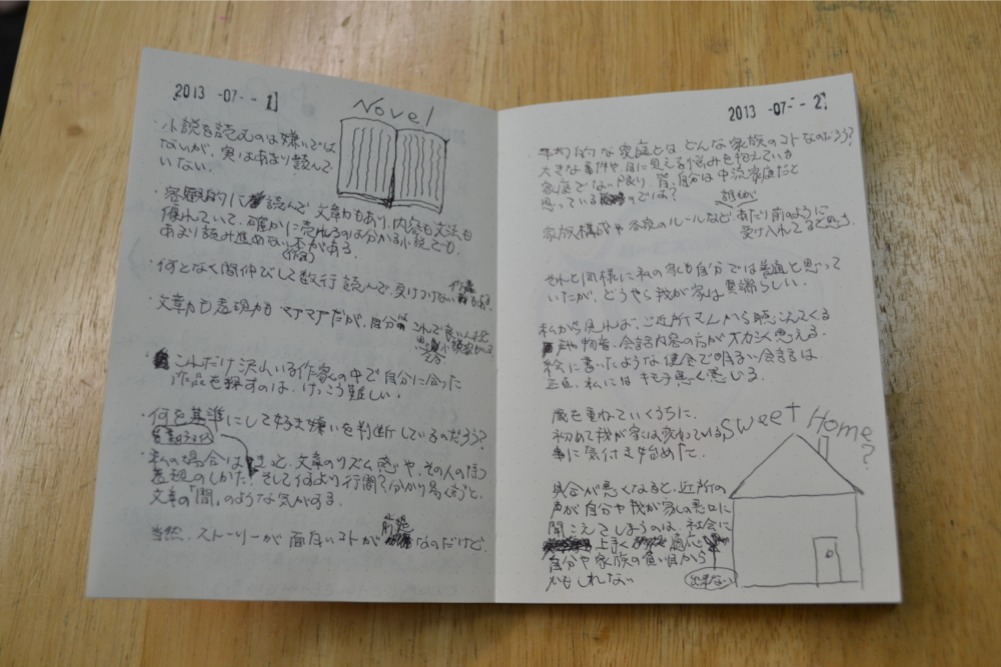 2013 -07- - 1
Novel
・小説を読むのは嫌いでは
ないが、実はあまり読んで
いない。
・客観的に読んで、文章力もあり、内容も文法も
優れていて、確かに売れるのは分かる小説でも、
あまり読み進めない本がある。
(作家)
・何となく間伸びして数行読んで、受けつけない
・文章力も表現力もマアマアだが、自分は これで良いんだと
これだけ沢山いる作家の中で自分に合った
作品を探すのは、けっこう難しい。
・何を基準にして好き嫌いを判断しているのだろう?
・私の場合はきっと、文章のリズム感や、その人のもつ
表現のしかた、そして何より行間?分かり易く言うと、
文章の「間」のような気がする。
当然、ストーリーが面白いコトが前提なのだけど。
2013 -07- - 2
・平均的な家庭とは どんな家族のコトなのだろう?
大きな事件や、目に見える悩みを抱えている
家庭でない限り、皆、自分は中流家庭だと
思っているのでは?
誰もが
家族構成や各家のルールなど、あたり前のように
受け入れてると思う。
それと同様に私の家も自分では普通と思って
いたが、どうやら我が家は異端らしい。
私から見れば、ご近所さんから聴こえてくる
声や物音、会話内容の方がオカシく思える。
絵に書いたような健全で明るい会話は、
正直、私にはキモチ悪く感じる。
歳を重ねていくうちに、
初めて我が家は変わっている
事に気付き始めた。
Sweet Home?
具合が悪くなると、近所の
声が自分や我が家の悪口に
聞こえてしまうのは、社会に
上手く適応
自分や家族の負い目から
かもしれない
出来ない